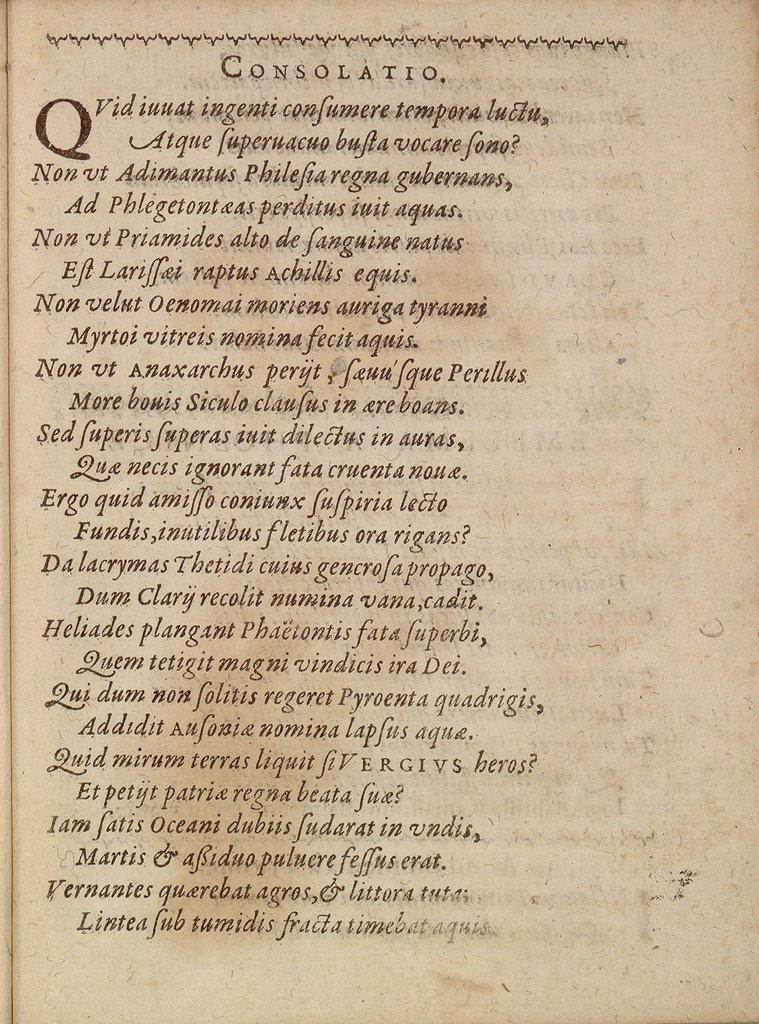 CONSOLATIO.
QVid iuuat ingenti conſumere tempora luctu,
Atque ſuperuacuo buſta vocare ſono?
Non vt Adimantus Phileſia regna gubernans,
Ad Phlegetontæas perditus iuit aquas.
Non vt Priamides alto de ſanguine natus
Eſt Lariſſæi raptus Achillis equis.
Non velut Oenomai moriens auriga tyranni
Myrtoi vitreis nomina fecit aquis.
Non vt Anaxarchus perijt, ſæuuſque Perillus
More bouis Siculo clauſus in ære boans.
Sed ſuperis ſuperas iuit dilectus in auras,
Quæ necis ignorant fata cruenta nouæ.
Ergo quid amiſſo coniunx ſuſpiria lecto
Fundis, inutilibus fletibus ora rigans?
Da lacrymas Thetidi cuius gencroſa propago,
Dum Clarij recolit numina vana, cadit.
Heliades plangant Phaëtontis fata ſuperbi,
Quem tetigit magni vindicis ira Dei.
Qui dum non ſolitis regeret Pyroenta quadrigis,
Addidit Auſoniæ nomina lapſus aquæ.
Quid mirum terras liquit ſi VERGIVS heros?
Et petijt patriæ regna beata ſuæ?
Iam ſatis Oceani dubiis ſudarat in vndis,
Martis & aßiduo puluere feſſus erat.
Vernantes quærebat agros, & littora tuta;
Lintea ſub tumidis fracta timebat aquis.